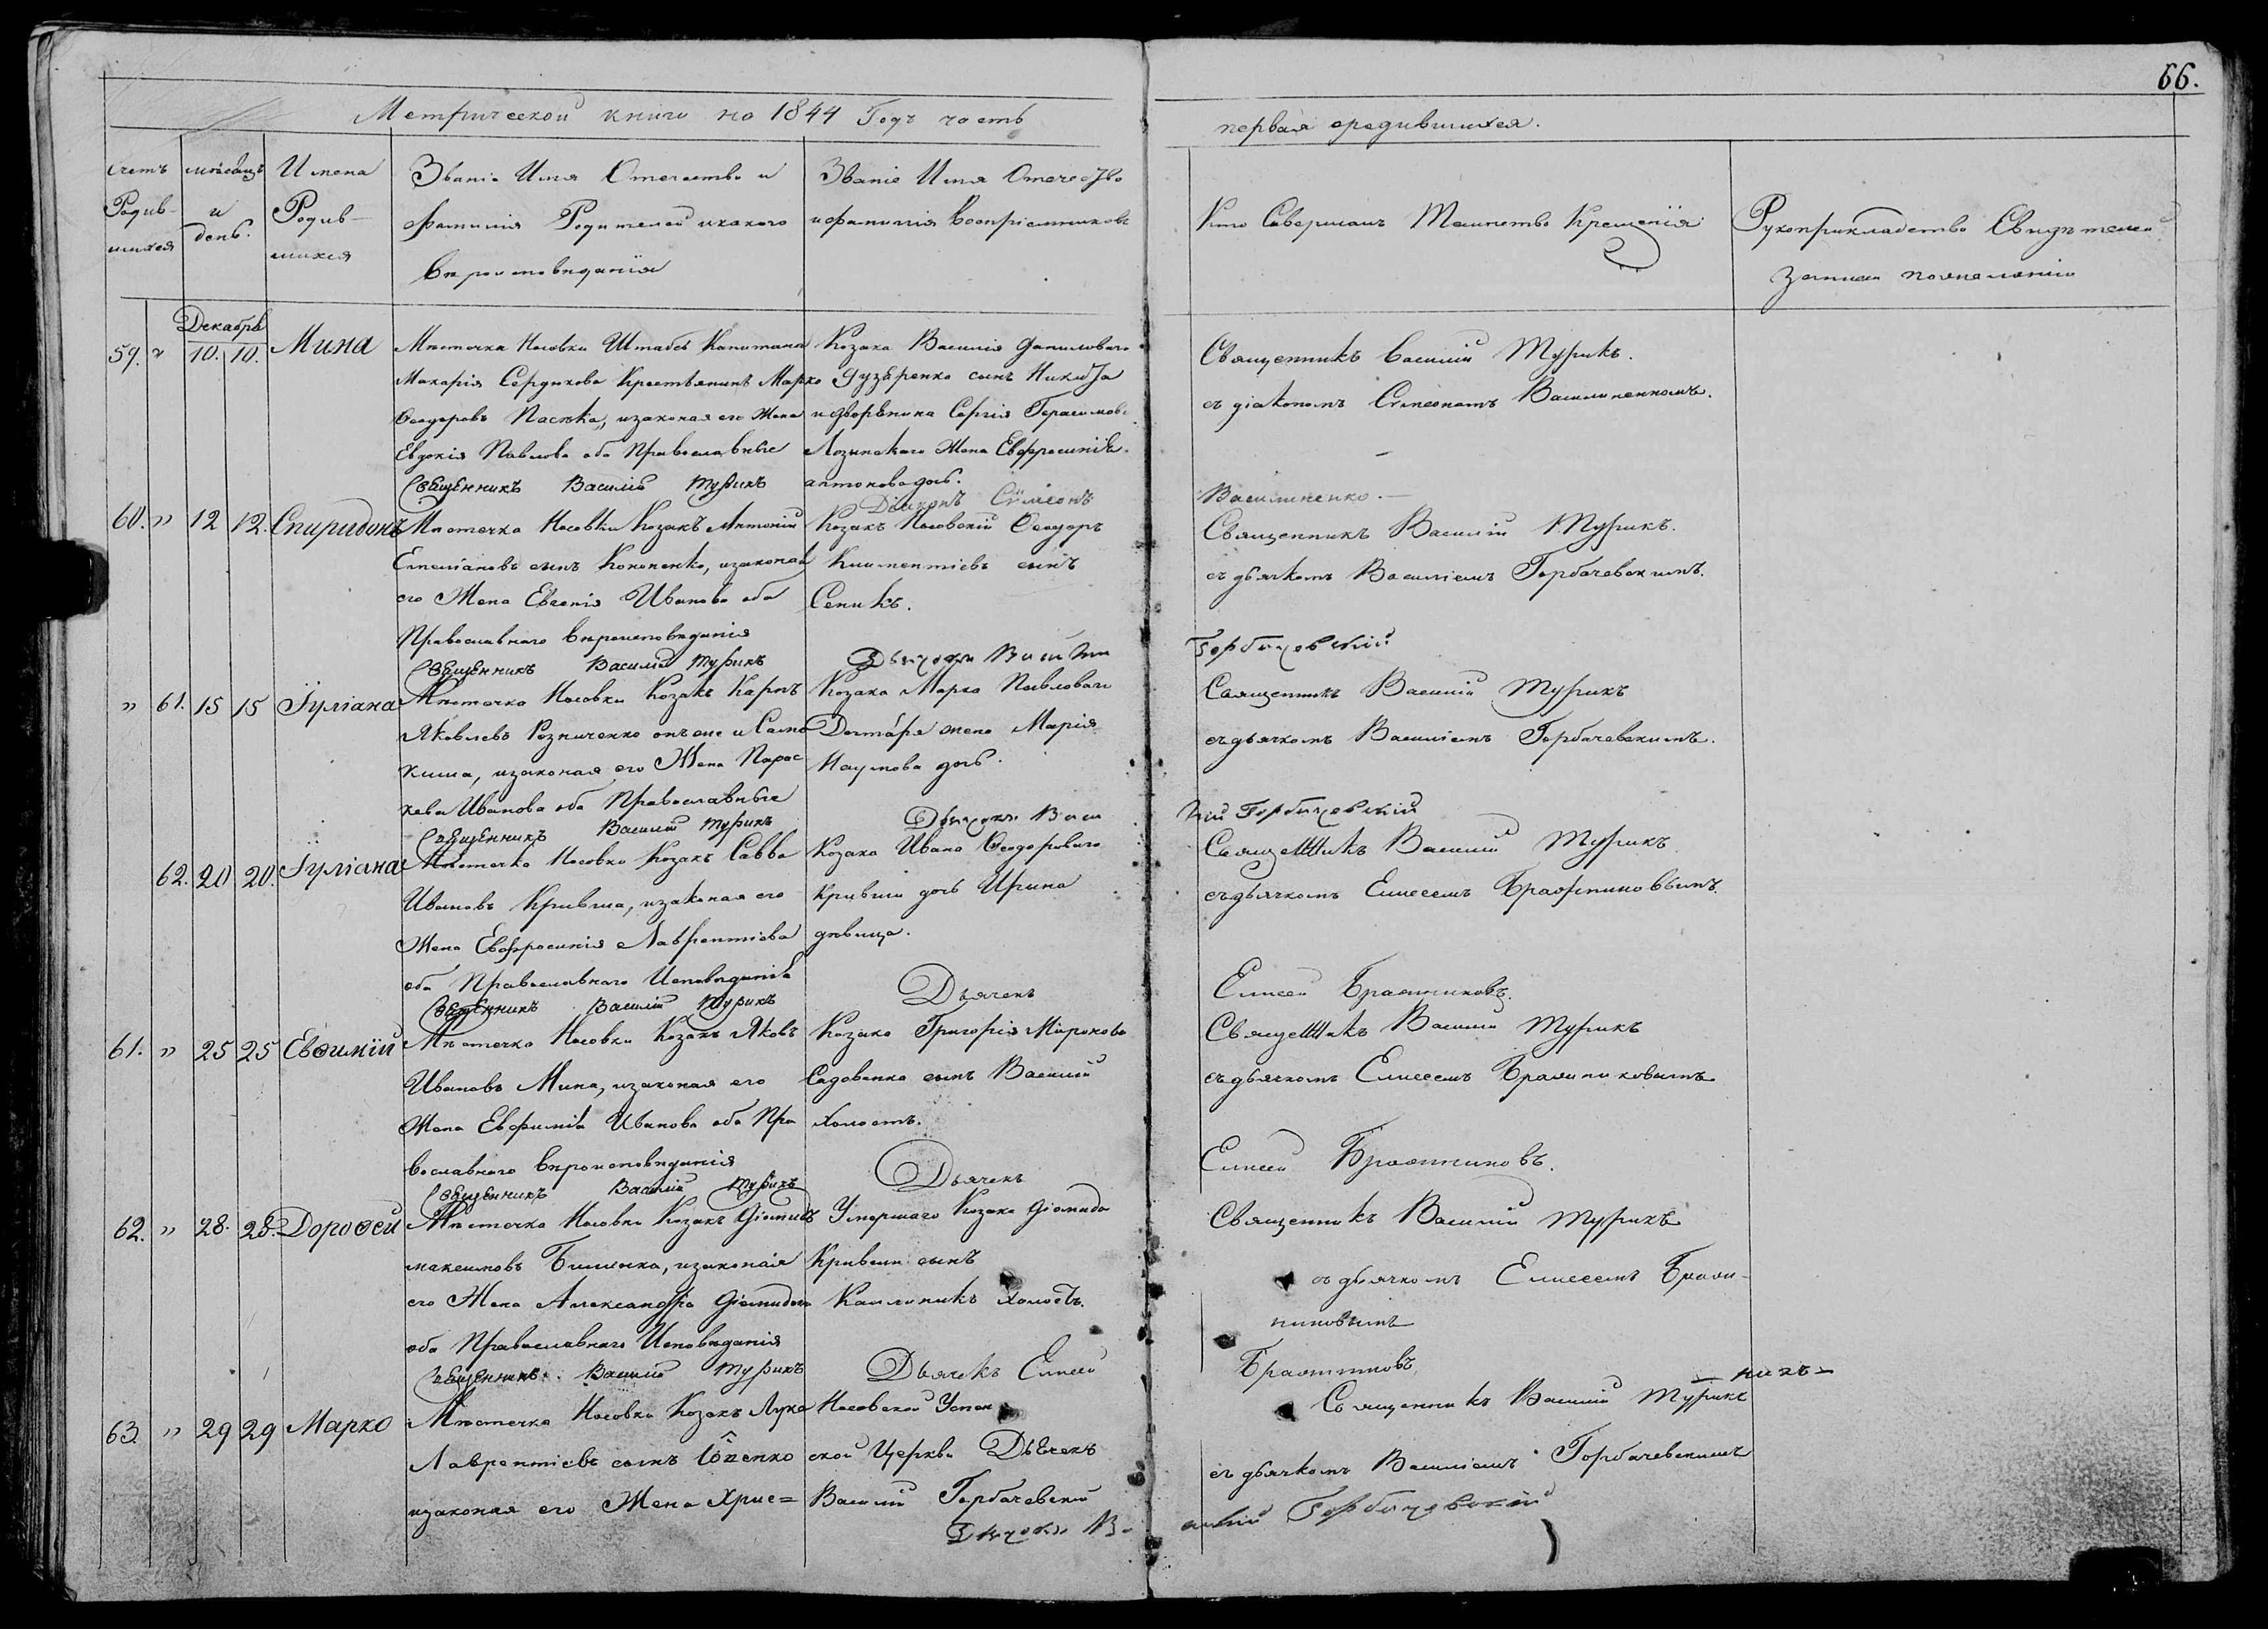 66.
Метрической книги на 1844 Годъ часть
первая ородившихся.
счетъ Родив- шихся
мѣсяцъ и день.
Имена Родив- шихся
Званіе Имя Отечество и
Фамилія Родителей икакого
Вѣроисповѣданія
Званіе Имя Отечество
ифамилія Воспріемниковъ
Кто Совершалъ Таинство Крещенія
Рукоприкладство Свидѣтелей
записи пожеланію
Декабрь
59. " 10. 10. Мина
Мѣстечка Носовки Штабсъ Капитана
Макарія Сердюкова Крестьянинъ Марко
Ѳеодоровъ Пасѣка, изаконая его Жена
Евдокія Павлова оба Православные
Священникъ Василій Турикъ
Козака Василія Даниловаго
Дузѣренко сынъ Никита
идворянина Сергія Герасимова
Лозинскаго Жена Евфросинія
антонова дочь.
Діаконъ Сѵмеонъ
Священникъ Василій Турикъ.
съ діакономъ Сѵмеономъ Василиненкомъ.
Василиненко.
60. " 12 12. Спиридонъ
Мѣстечка Носовки Козакъ Антоній
Емеліановъ сынъ Кононенко, изаконая
его Жена Евгенія Иванова оба
Православнаго Вѣроисповѣданія
Священникъ Василій Турикъ
Козакъ Носовскій Ѳеодоръ
Климентіевъ сынъ
Сеникъ.
Дьячокъ Васили
Священникъ Василій Турикъ.
съ дьячкомъ Василіемъ Горбачевскимъ.
Горбачевскій
" 61. 15 15 Іуліана
Мѣстечка Носовки Козакъ Карпъ
Яковлевъ Резниченко онъ же и Само
киша, изаконая его Жена Парас
кева Иванова оба Православные
Священникъ Василій Турикъ
Козака Марка Павловаго
Дегтаря жена Марія
Наумова дочь.
Дьячокъ Васи
Священникъ Василій Турикъ
съдьячкомъ Василіемъ Горбачевскимъ.
лій Горбачевскій
62. 20 20. Іуліана
Мѣстечка Носовки Козакъ Савва
Ивановъ Кривша, изаконая его
Жена Евфросинія Лаврентіева
оба Православнаго Исповѣданія
Священникъ Василій Турикъ
Козака Ивана Ѳеодороваго
Кривши дочь Ирина
дѣвица.
Дьячекъ
Священникъ Василій Турикъ
съдьячкомъ Елисеемъ Бражниковымъ.
Елисей Бражниковъ.
61. " 25 25 Евѳимій
Мѣстечка Носовки Козакъ Яковъ
Ивановъ Мина, изаконая его
Жена Евфимія Иванова оба Пра
вославнаго Вѣроисповѣданія
Священникъ Василій Турикъ
Козака Григорія Миронова
Садовенка сынъ Василій
Холостъ.
Дьячекъ
Священникъ Василій Турикъ
съдьячкомъ Елисеемъ Бражниковымъ
Елисей Бражниковъ.
62. " 28. 28. Дороѳей
Мѣстечка Носовки Козакъ Діомидъ
максимовъ Билинка, изаконая
его Жена Александра Діомидова
оба Православнаго Исповѣданія
Священникъ Василій Турикъ
Умершаго Козака Діомида
Кривши сынъ
Каллиникъ холостъ.
Дьячекъ Елисей
Священникъ Василій Турикъ
съ дьячкомъ Елисеемъ Браж-
никовымъ
Бражниковъ
63. " 29 29 Марко
Мѣстечка Носовки Козакъ Лука
Лаврентіевъ сынъ
изаконая его Жена Хрис=
Носовской Успен
ской Церкви Дьячекъ
Василій Горбачевскій
Дьячокъ В-
Священникъ Василій Турикъ
съ дьячкомъ Василіемъ Горбачевскимъ
асилій Горбачевскій